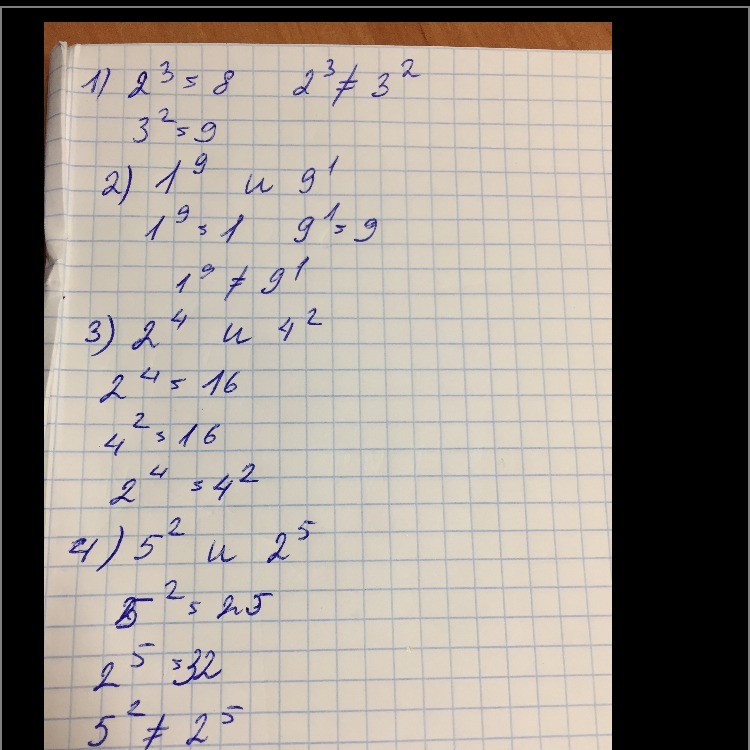 1) 2³ = 8 2³ ≠ 3²
3² = 9
2) 1⁹ и 9¹
1⁹ = 1 9¹ = 9
1⁹ ≠ 9¹
3) 2⁴ и 4²
2⁴ = 16
4² = 16
2⁴ = 4²
4) 5² и 2⁵
5² = 25
2⁵ = 32
5² ≠ 2⁵